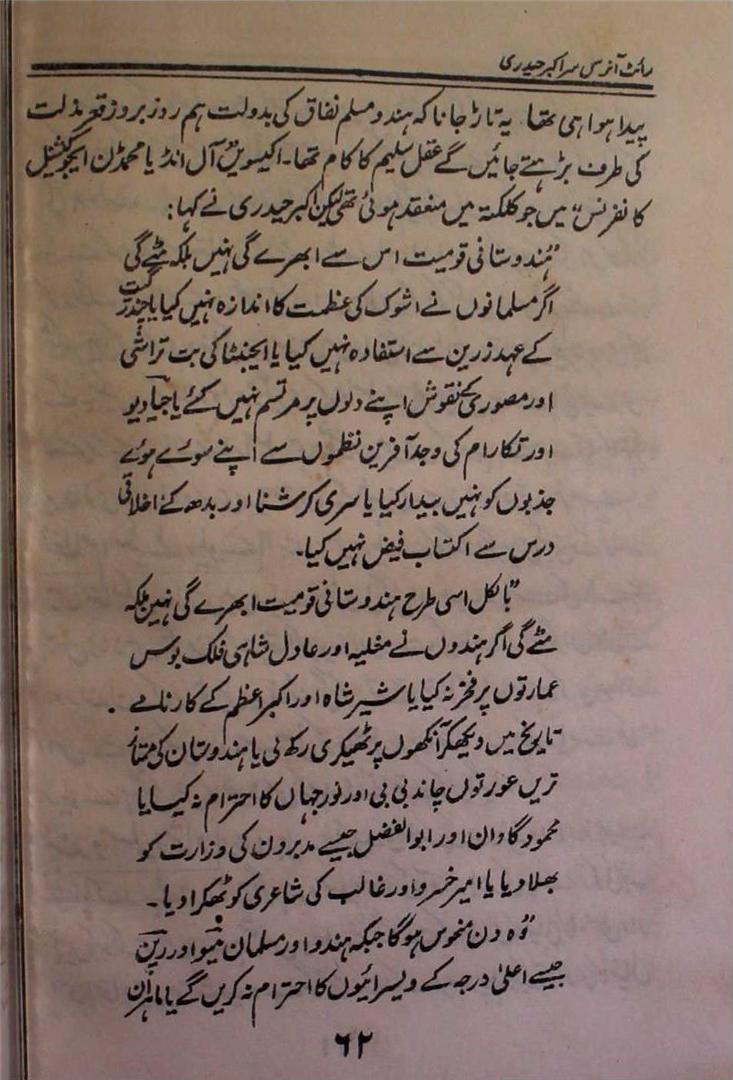 رائٹ آنربس سر اکبر حیدری
پیدا ہوا ہی تھا۔ یہ تاڑ جانا کہ ہندو مسلم نفاق کی بدولت ہم روز بروز قعر مذلت
کی طرف بڑھتے جائیں گے عقل سلیم کا کام تھا۔ اکیسویں آل انڈیا محمڈن ایجوکیشنل
کانفرنس" میں جو کلکتہ میں منعقد ہوئی تھی لیکن اکبر حیدری نے کہا:
"ہندوستانی قومیت اس سے ابھرے گی نہیں بلکہ مٹے گی
اگر مسلمانوں نے اشوک کی عظمت کا اندازہ نہیں کیا یا چندر گپت
کے عہد زرین سے استفادہ نہیں کیا یا ایجنٹا کی بت تراشی
اور مصوری کے نقوش اپنے دلوں پر مرتسم نہیں کئے یا جیادیو
اور تکارام کی وجد آفرین نظموں سے اپنے سوئے ہوئے
جذبوں کو نہیں بیدار کیا یا سری کرشنا اور بدھ کے اخلاقی
درس سے اکتساب فیض نہیں کیا۔
"بالکل اسی طرح ہندوستانی قومیت ابھرے گی نہیں بلکہ
مٹے گی اگر ہندوں نے مغلیہ اور عادل شاہی فلک بوس
عمارتوں پر فخر نہ کیا یا شیر شاہ اور اکبر اعظم کے کارنامے
تاریخ میں دیکھکر آنکھوں پر ٹھیکری رکھ لی یا ہندوستان کی ممتاز
ترین عورتوں چاند بی بی اور نور جہاں کا احترام نہ کیا یا
محمود گاوان اور ابوالفضل جیسے مدبرون کی وزارت کو
بھلا دیا یا امیر خسرو اور غالب کی شاعری کو ٹھکرا دیا۔
"وہ دن منحوس ہوگا جبکہ ہندو اور مسلمان میو اور رپن
جیسے اعلیٰ درجہ کے ویسرائیوں کا احترام نہ کریں گے یا ماہران
۶۲